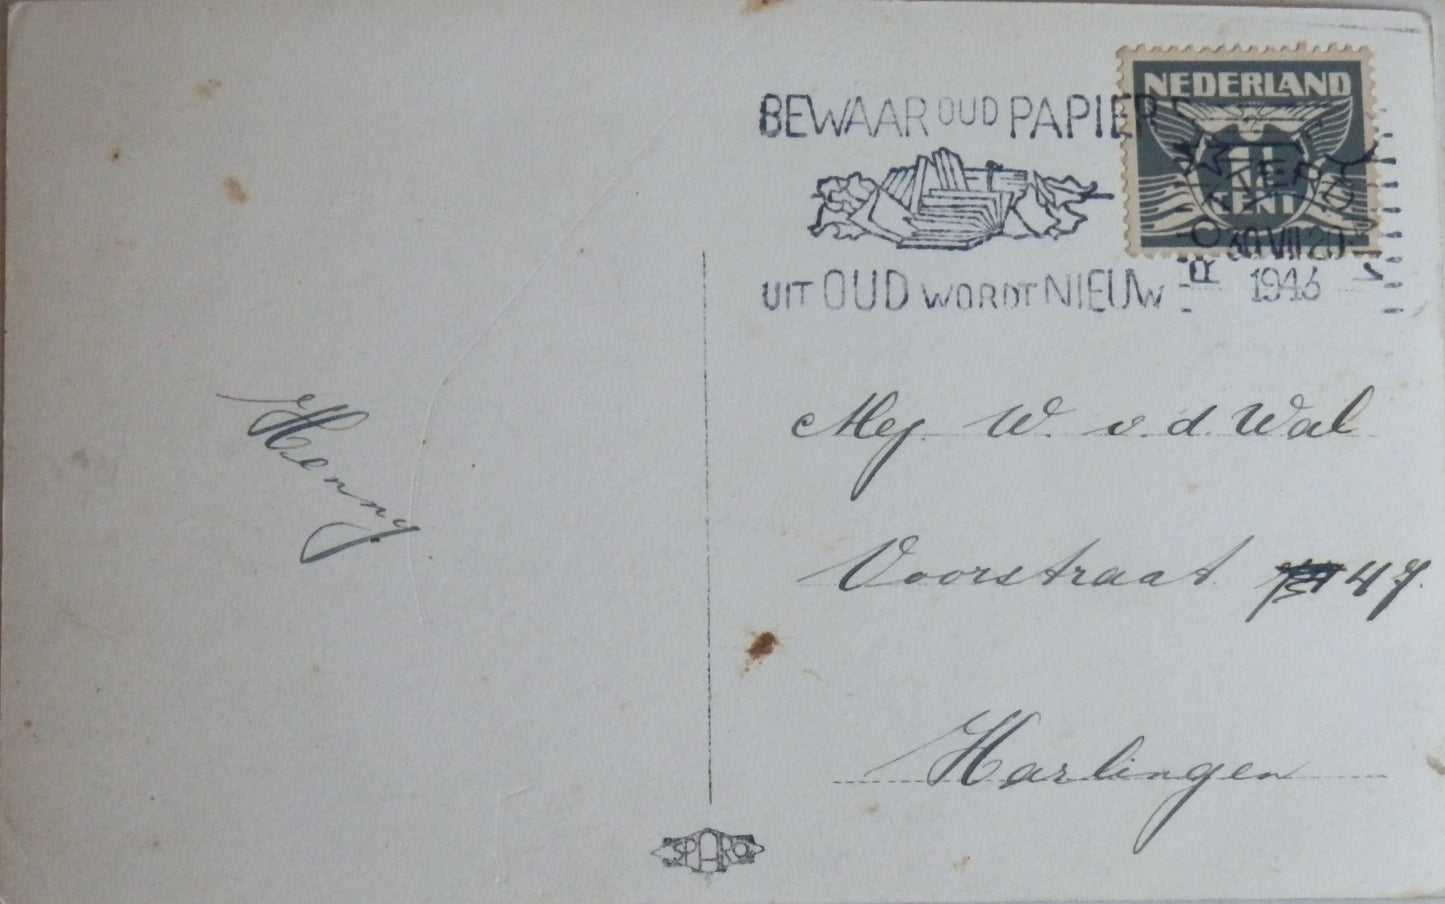 BEWAAR OUD PAPIER
UIT OUD WORDT NIEUW
NEDERLAND
1½
CENT
ROTTERDAM
30 VII 20
1946
Henny.
Mej. W. v. d. Wal
Voorstraat 47.
Harlingen
SPARO